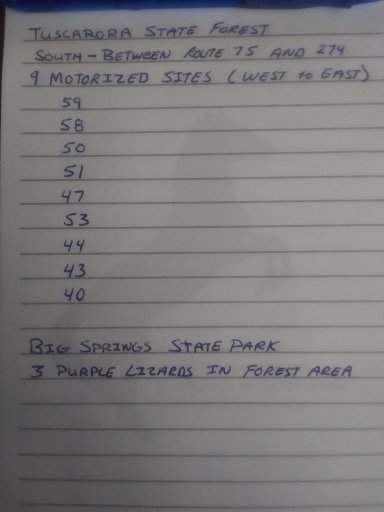 TUSCARORA STATE FOREST
SOUTH - BETWEEN ROUTE 75 AND 274
9 MOTORIZED SITES (WEST to EAST)
59
58
50
51
47
53
44
43
40
BIG SPRINGS STATE PARK
3 PURPLE LIZARDS IN FOREST AREA